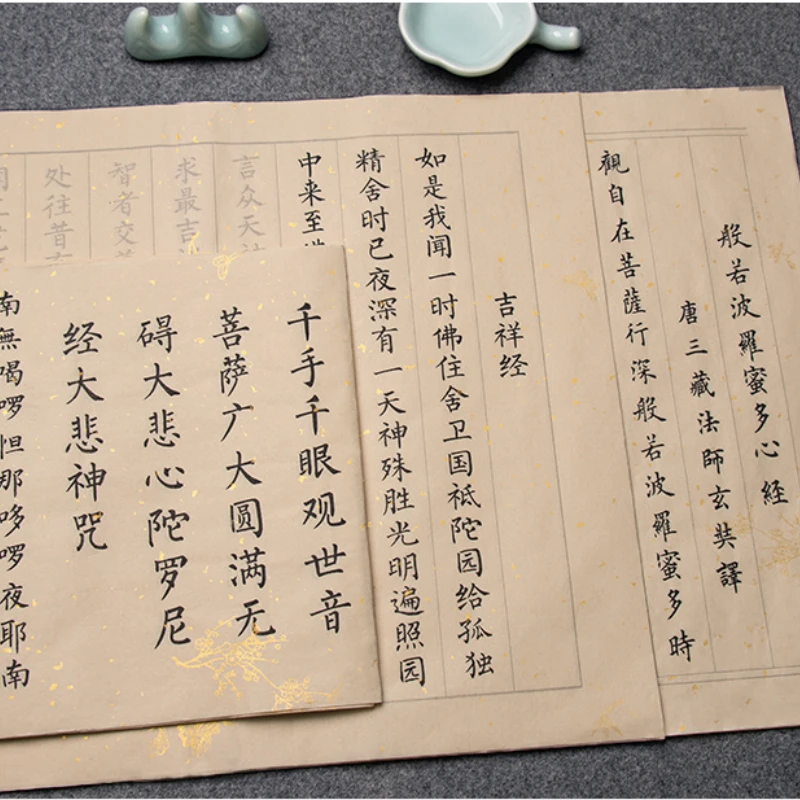 般若波羅蜜多心経
唐三藏法師玄奘譯
觀自在菩薩行深般若波羅蜜多時
吉祥经
如是我闻一时佛住舍卫国祗陀园给孤独
精舍时已夜深有一天神殊胜光明遍照园
中来至
言众天
求最吉
智者交
处往昔
千手千眼观世音
菩萨广大圆满无
碍大悲心陀罗尼
经大悲神咒
南無喝啰怛那哆啰夜耶南